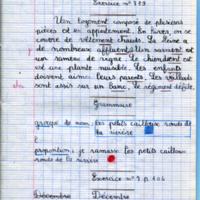 Exercice n° 789
Un logement composé de plusieurs
pièces est un appartement. En hiver, on se
couvre de vêtement chauds. La Seine a
de nombreux affluents. Un sarment est
un rameau de vigne. Le chiendent est
est une plante nuisible. Les enfants
doivent aimer leurs parents. Les
sont assis sur un banc. le régiment défile.
Grammaire
groupe de nom : les petits cailloux ronds de
la rivière
proposition : je ramasse les petits cailloux
ronds de la rivière
Exercice n° 9 p. 106
Décembre Décembre